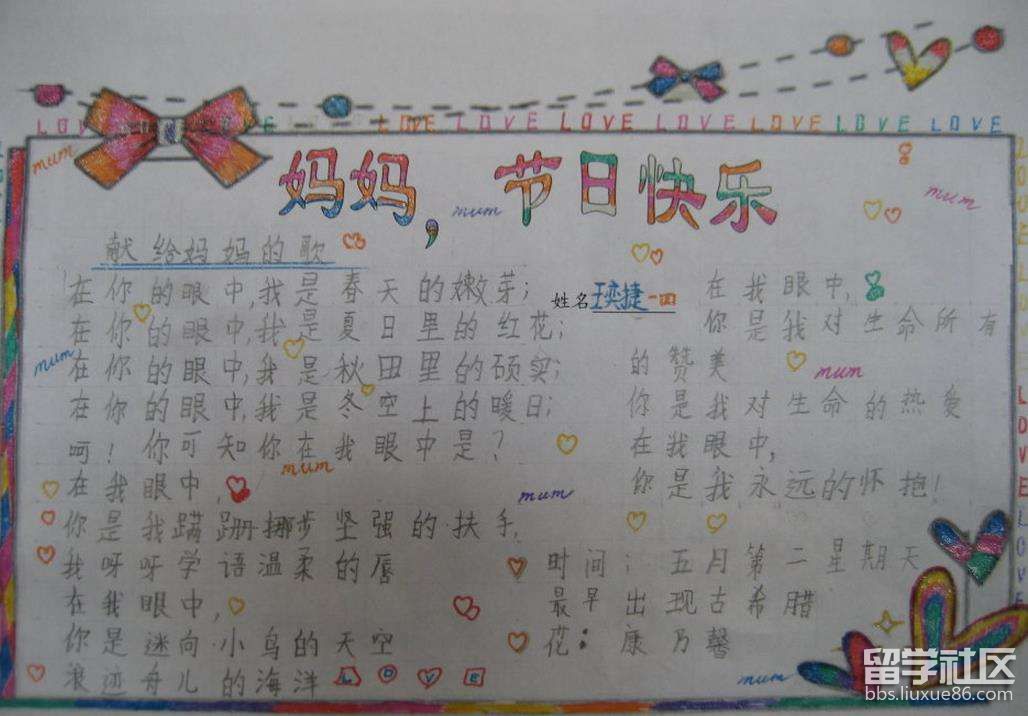 LOVE LOVE LOVE LOVE LOVE LOVE LOVE LOVE LOVE
mum
妈妈，节日快乐
mum
mum
献给妈妈的歌
在你的眼中,我是春天的嫩芽;
在你的眼中,我是夏日里的红花;
在你的眼中,我是秋田里的硕实;
在你的眼中,我是冬空上的暖日;
呵！你可知你在我眼中是？
在我眼中,
你是我蹒跚挪步坚强的扶手,
我呀呀学语温柔的唇
在我眼中,
你是迷向小鸟的天空
浪迹舟儿的海洋
LOVE
mum
mum
姓名 王奕捷 一四
在我眼中,
你是我对生命所有
的赞美
mum
你是我对生命的热爱
在我眼中,
你是我永远的怀抱！
mum
时间：五月第二星期天
最早出现古希腊
花：康乃馨
mum
LOVE
LOVE
留学社区
bbs.liuxue86.com